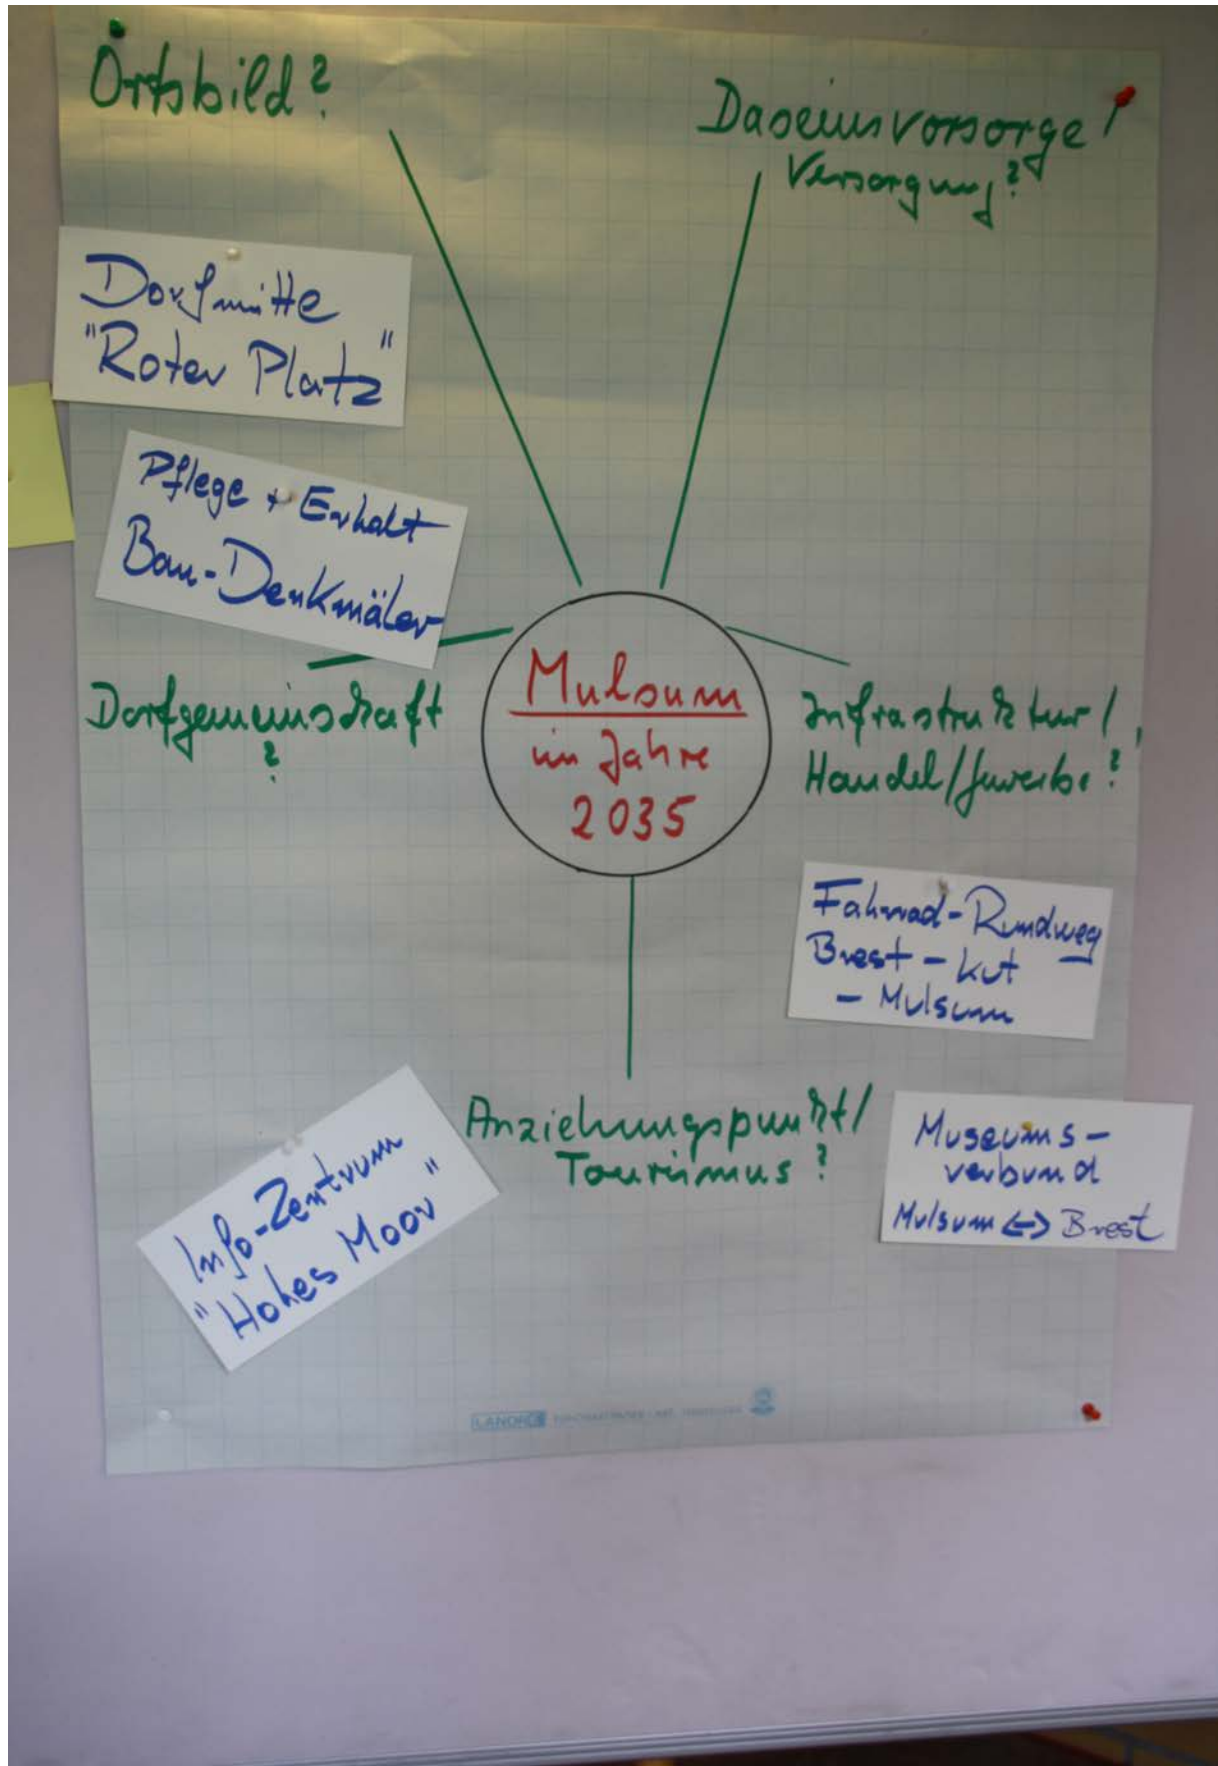 Ortsbild?
Daseinsvorsorge/
Versorgung?
Dorfmitte
"Roter Platz"
Pflege + Erhalt
Bau-Denkmäler
Dorfgemeinschaft
?
Mulsum
im Jahre
2035
Infrastruktur/
Handel/Gewerbe?
Fahrrad-Rundweg
Brest - Kut
- Mulsum
Anziehungspunkt/
Tourismus?
Museums-
verbund
Mulsum <-> Brest
Info-Zentrum
"Hohes Moor"
LANDRÉ